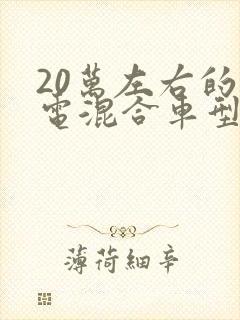 20萬左右的
電混合車型
薄荷細辛